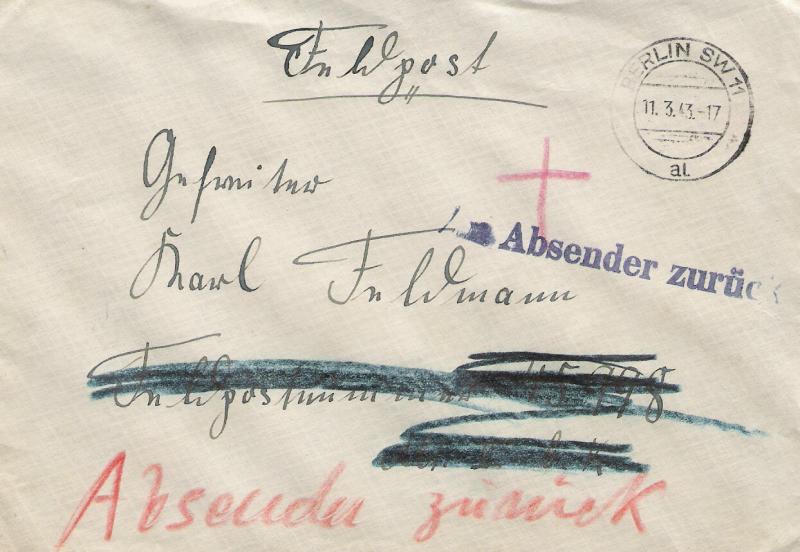 Feldpost
BERLIN SW 11
11. 3. 43.-17
al
Gefreiter
Karl Feldmann
An Absender zurück
Feldpostnummer
Absender zurück